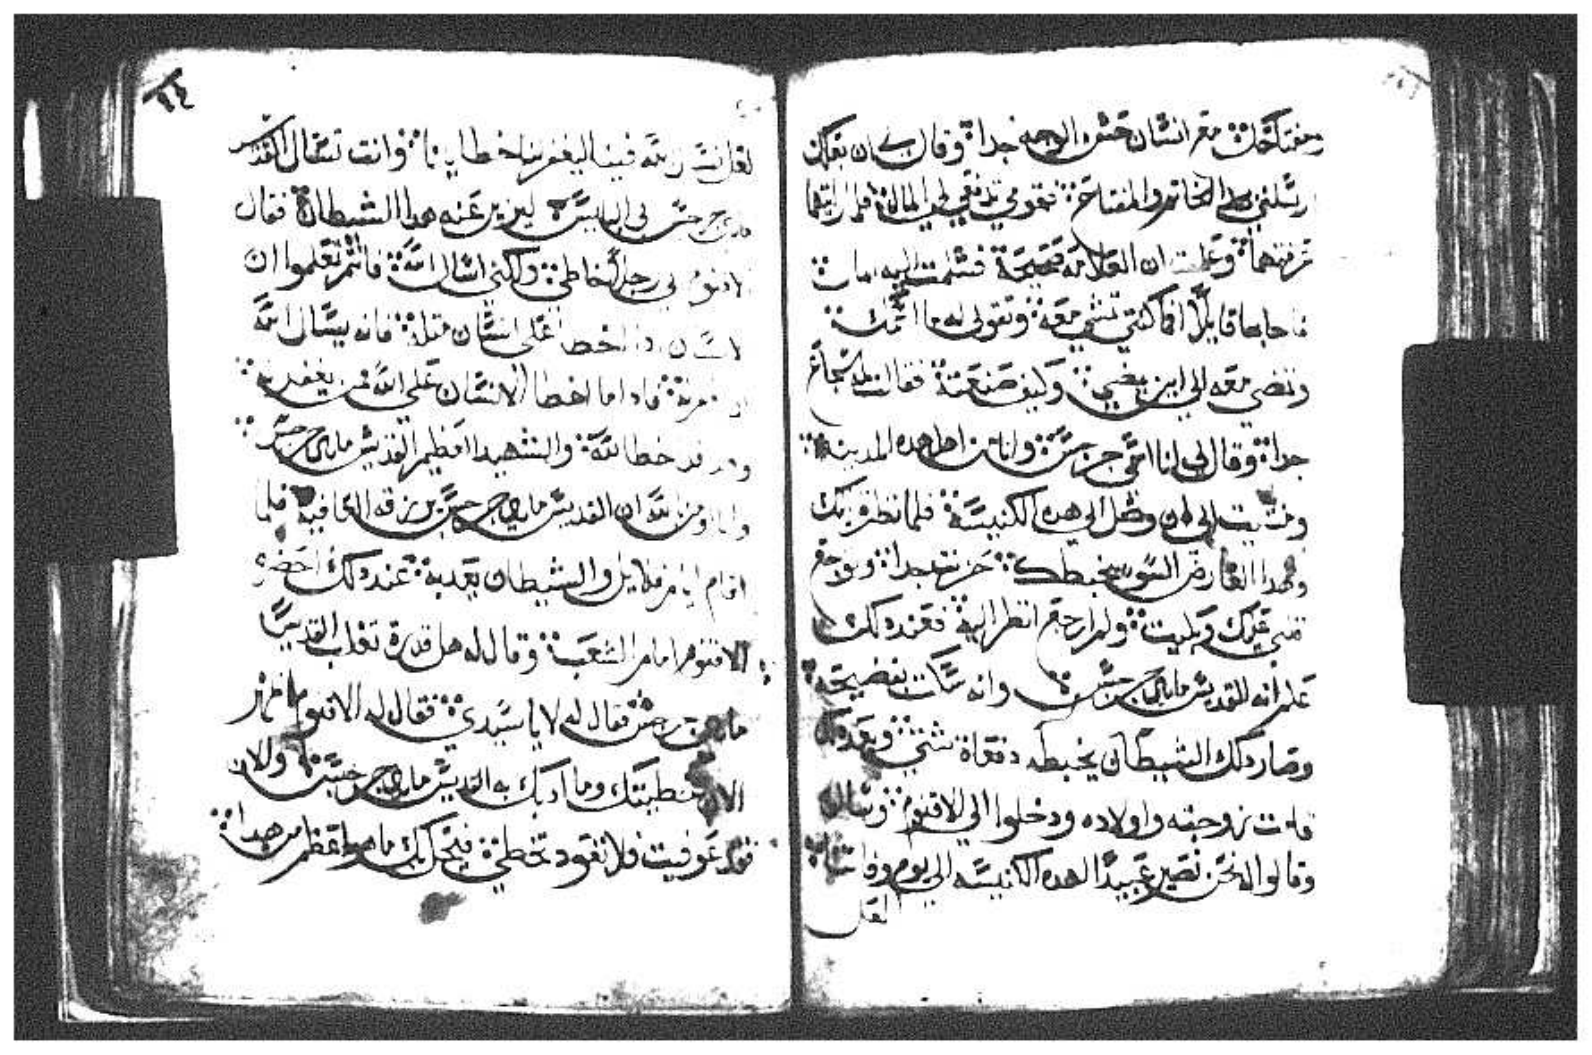 ومفتاحك مع انسان حسن الوجه جدا وقال لي ان بعلكي
ارسلني بهدا الخاتم والمفتاح تقومي تدفعي لي المال فلما رايتهما
عرفتهما وعلمت ان العلامه صحيحة فسلمت اليه المال
فاجابها قايلا اما كنتي تمشي معه وتقولي له ما اسمك
وتمضي معه الي اين يمضي وكيف صنعته فقالت له شجاع
جدا وقال لي انا اسمي جرجس وانا من اهل هده المدينه
ومشيت الي ان وصل الي هده الكنيسة فلما نظرت انك
وهدا العارض السو يخبطك حزنت جدا ووجع
قلبي عليك وبكيت ولم ارجع انظر اليه فعند دلك
علم انه القديس ماري جرجس وانه سكت بفضيحة
وصار دلك الشيطان يخبطه دفعاة شتي وبعد دلك
قامت زوجته واولاده ودخلوا الي الاقنوم وسالوه
وقالوا له نحن نصير عبيدا لهده الكنيسه الي يوم وفاتنا
لعل
٩٤
لعل انسان منه فينا ليغفر لنا خطايانا وانت تسال القديس
ماري جرجس لي ابا يسي ليزيل عنه هدا الشيطان فقال
الاقنوم اني رجلا خاطي ولكني اسال الله فانتم تعلموا ان
الانسان ادا اخطا علي انسان مثله فانه يسال الله
ان يغفر له فادا ما اخطا الانسان علي الله من يغفر له
وهو قد خطا لله والشهيد العظيم القديس ماري جرجس
وانا اومن بالله ان القديس ماري جرجس يرزقه العافيه فلما
اقام ايام قلايل والشيطان يعدبه عند دلك احضره
الاقنوم امام الشعب وقال له هل قدرة تغلب القديس
ماري جرجس فقال له لا يا سيدي فقال له الاقنوم
الان خطيتك وما ادبك به القديس ماري جرجس والان
فقد عوفيت فلا تعود تخطي فيحل بك ما هو اعظم من هدا